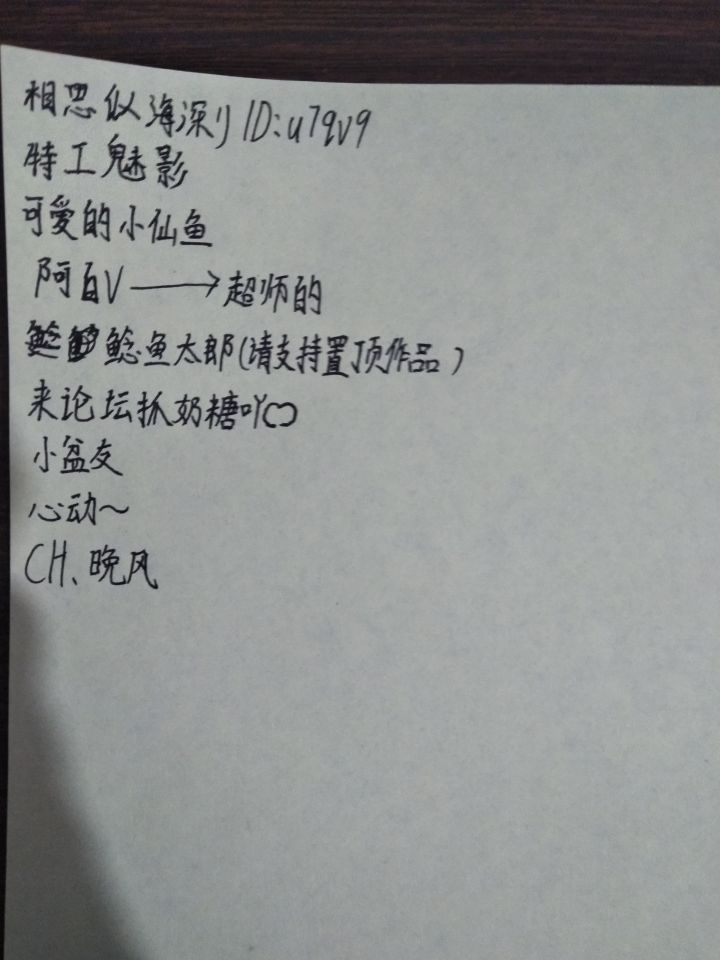 相思似海深刂ID:u7qv9
特工魅影
可爱的小仙鱼
阿百V→超师的
鲶鱼太郎(请支持置顶作品)
来论坛抓奶糖吖
小盆友
心动~
CH、晚风